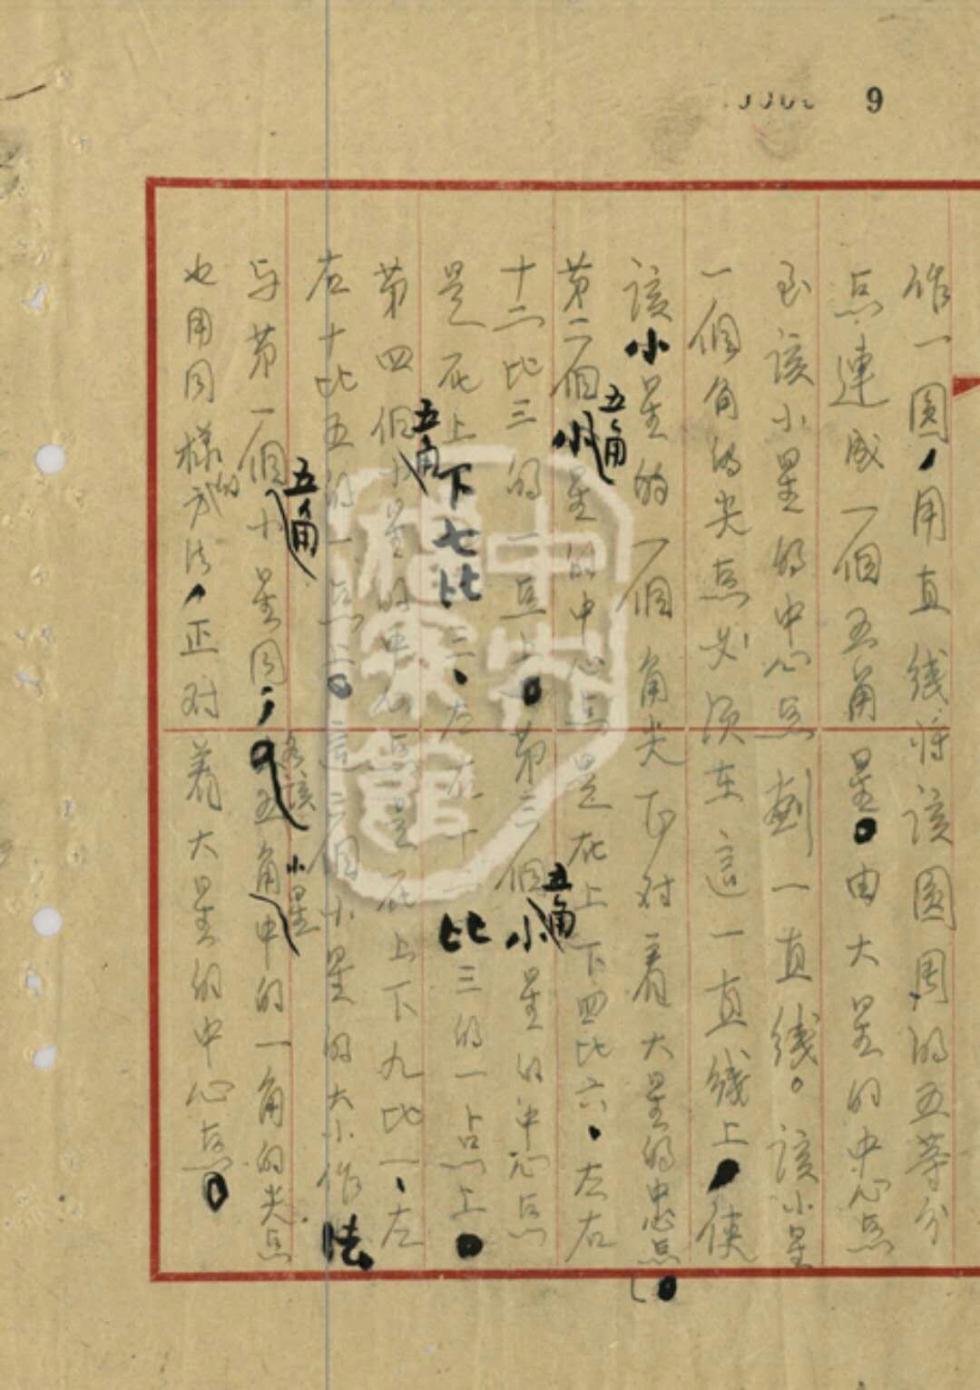 9
作一圓，用直线将该圆周的五等分
点連成一個五角星。由大星的中心点
至该小星的中心点劃一直线。该小星
一個角的尖点必须在這一直线上，使
该小星的一個角尖正对着大星的中心点。
第二個小五角星的中心点是在上下四比六、左右
十二比三的一点上。第三個小五角星的中心点
是在上下七比三、左右十二比三的一点上。
第四個小五角星的中心点是在上下九比一、左
右十比五的一点上。這三個小星的大小作法
与第一個小五角星同；各该小星五角中的一角的尖点
也用同樣的方法，正对着大星的中心点。
中央檔案館